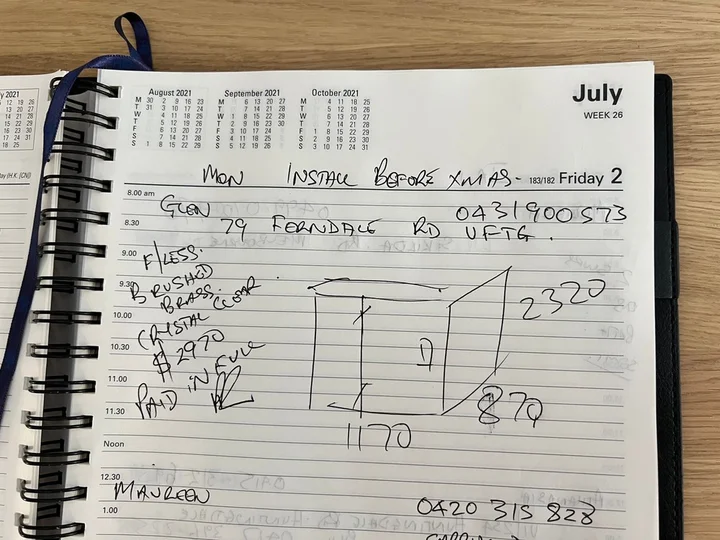 August 2021
M 30 2 9 16 23
T 31 3 10 17 24
W 4 11 18 25
T 5 12 19 26
F 6 13 20 27
S 7 14 21 28
S 1 8 15 22 29
September 2021
M 6 13 20 27
T 7 14 21 28
W 1 8 15 22 29
T 2 9 16 23 30
F 3 10 17 24
S 4 11 18 25
S 5 12 19 26
October 2021
M 4 11 18 25
T 5 12 19 26
W 6 13 20 27
T 7 14 21 28
F 1 8 15 22 29
S 2 9 16 23 30
S 3 10 17 24 31
July
WEEK 26
MON INSTALL BEFORE XMAS-
183/182 Friday 2
8.00 am
GLEN 0431900573
8.30
79 FERNDALE RD UFTG.
9.00
F/LESS.
9.30
BRUSHED
BRASS.
10.00
CRYSTAL CLEAR
10.30
$2970
11.00
PAID IN FULL
11.30
D
2320
870
1170
Noon
12.30
MAUREEN 0420 315 828
1.00